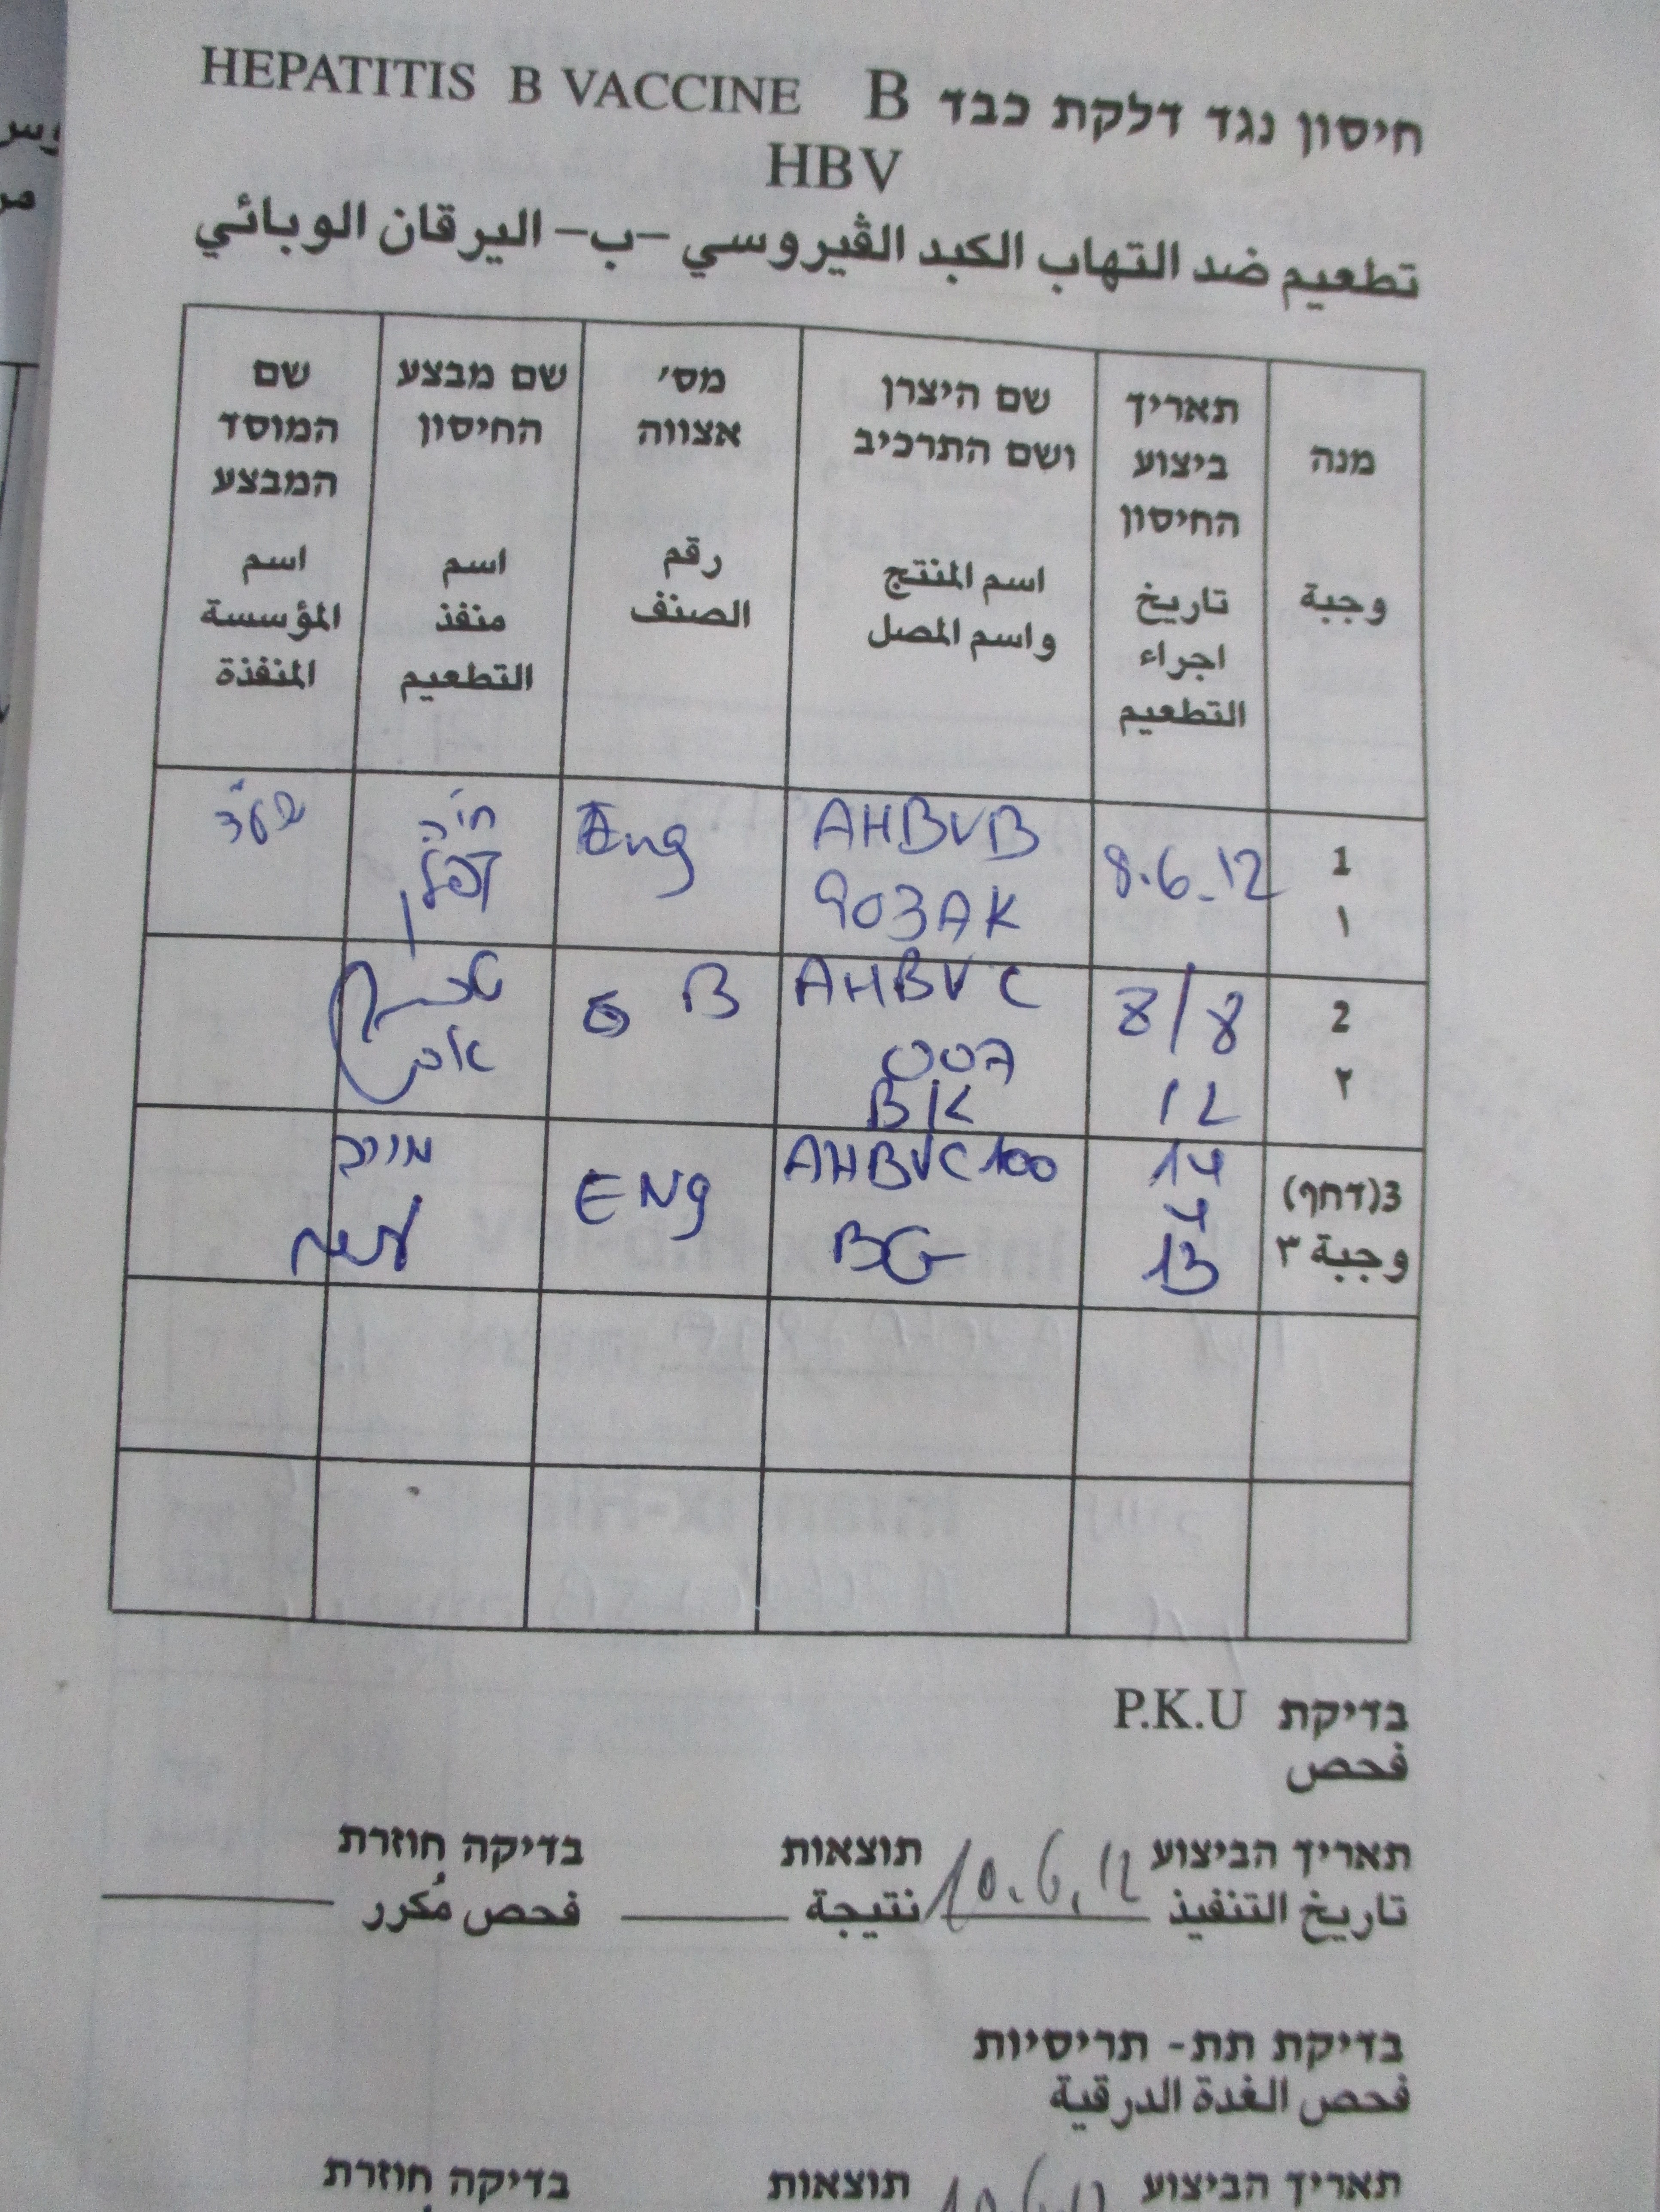 HEPATITIS B VACCINE חיסון נגד דלקת כבד B
HBV
تطعيم ضد التهاب الكبد الڤيروسي -ب- اليرقان الوبائي
מנה
وجبة
תאריך
ביצוע
החיסון
تاريخ
اجراء
التطعيم
שם היצרן
ושם התרכיב
اسم المنتج
واسم المصل
מס׳
אצווה
رقم
الصنف
שם מבצע
החיסון
اسم
منفذ
التطعيم
שם
המוסד
המבצע
اسم
المؤسسة
المنفذة
1
١
8.6.12
AHBVB
903AK
Eng
חיה
2
٢
8/8
12
AHBVC
007
BK
B
3(דחף)
وجبة ٣
14
4
13
AHBVC100
BG
ENg
בדיקת P.K.U
فحص
תאריך הביצוע 10.6.12 תוצאות
تاريخ التنفيذ نتيجة
בדיקה חוזרת
فحص مُكرر
בדיקת תת- תריסיות
فحص الغدة الدرقية
תאריך הביצוע 10.6.12 תוצאות בדיקה חוזרת